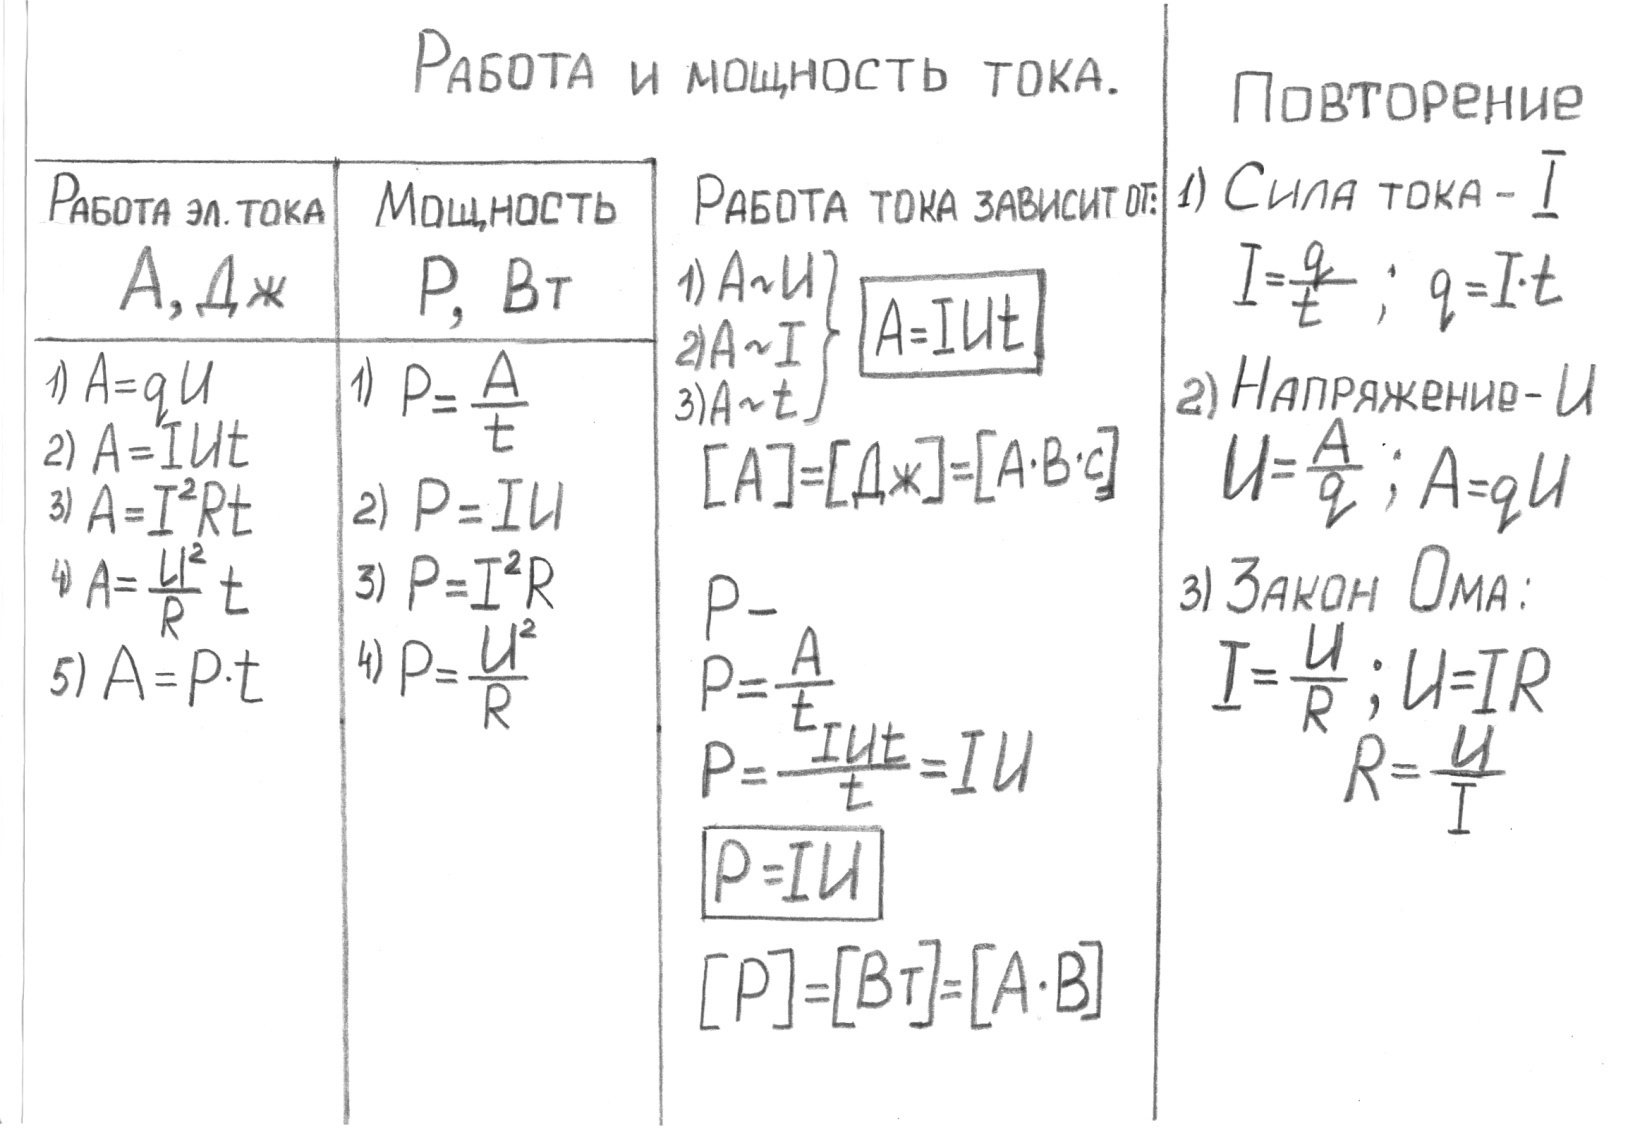 Работа и мощность тока.
Работа эл. тока
А, Дж
1) A=qU
2) A=IUt
3) A=I²Rt
4) A=U²/R t
5) A=P·t
Мощность
P, Вт
1) P=A/t
2) P=IU
3) P=I²R
4) P=U²/R
Работа тока зависит от:
1) A~U
2) A~I
3) A~t
A=IUt
[A]=[Дж]=[А·В·с]
P–
P=A/t
P=IUt/t=IU
P=IU
[P]=[Вт]=[А·В]
Повторение
1) Сила тока - I
I=q/t ; q=I·t
2) Напряжение - U
U=A/q ; A=qU
3) Закон Ома:
I=U/R ; U=IR
R=U/I